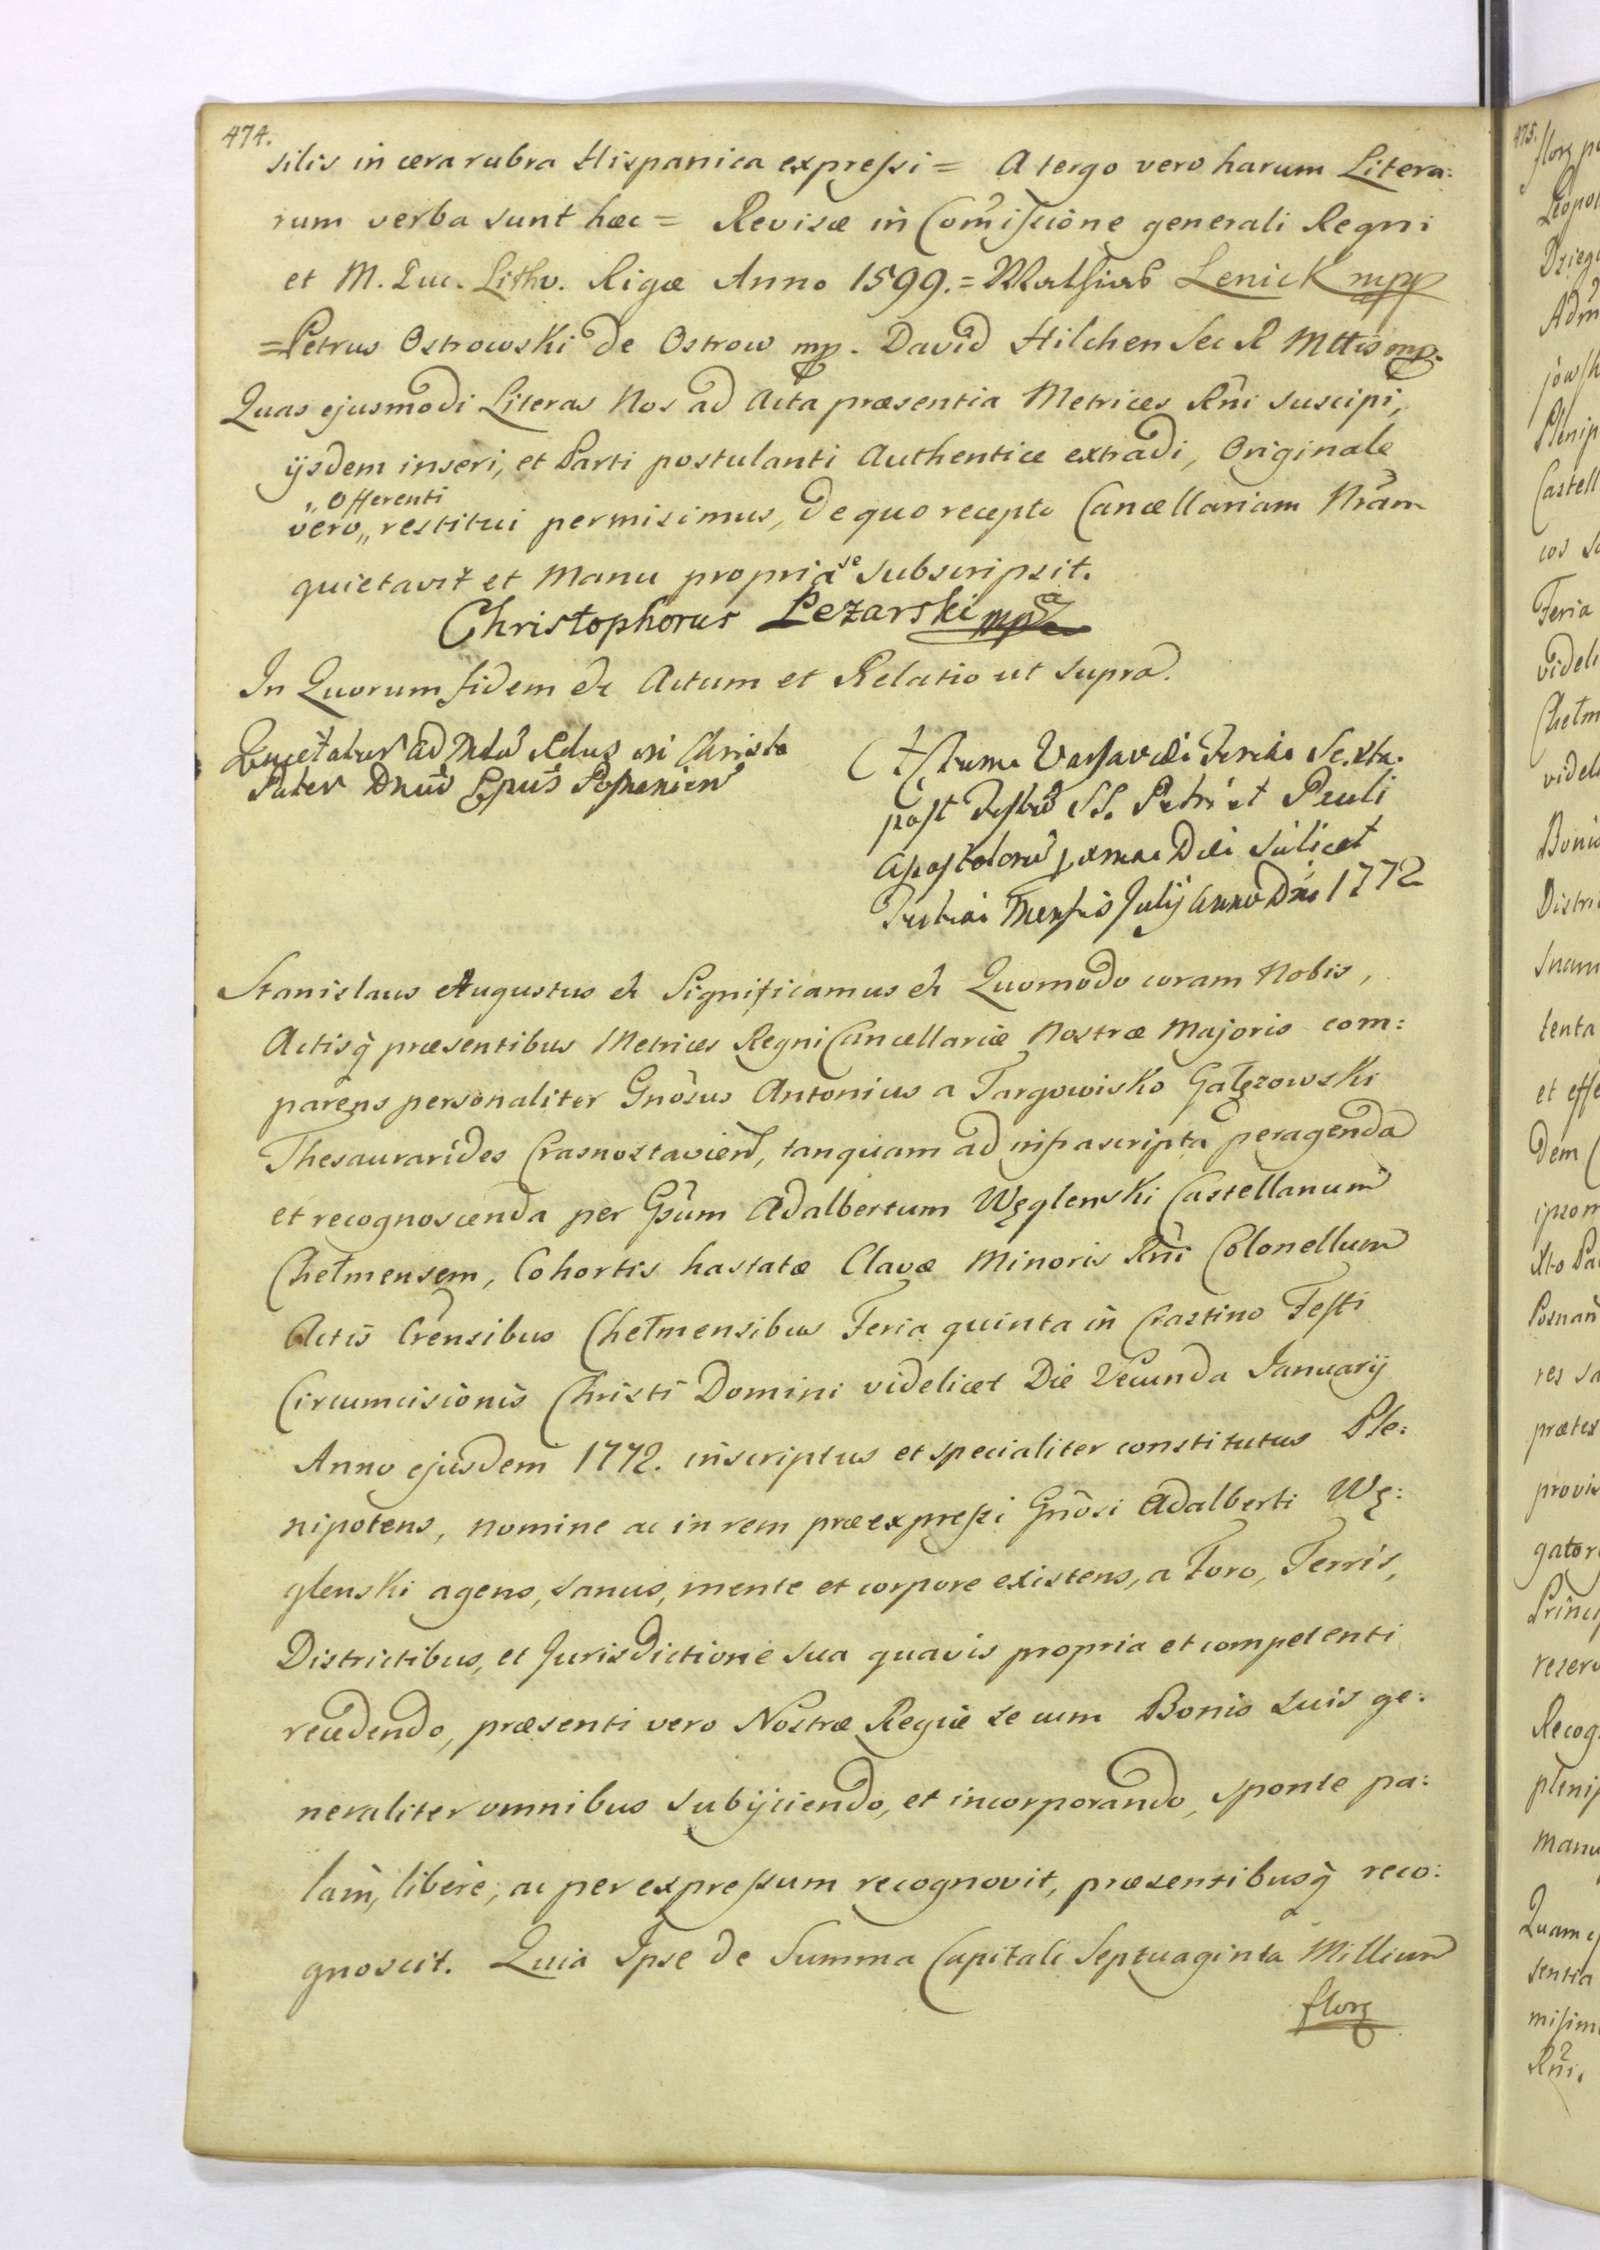 474.
silis in cera rubra Hispanica expressi = A tergo vero harum Litera:
rum verba sunt hæc = Revisæ in Comissione generali Regni
et M. Duc. Lithv. Rigæ Anno 1599. = Mathias Lenick mpp
= Petrus Ostrowski de Ostrow mp. David Hilchen Sec R Mttis mp.
Quas ejusmodi Literas Nos ad Acta præsentia Metrices Rni suscipi,
ijsdem inseri, et Parti postulanti Authentice extradi, Originale
„Offerenti
vero„ restitui permisimus, de quo recepto Cancellariam Nram
quietavit et Manu propria se subscripsit.
Christophorus Lezarski mpa
In Quorum fidem &c Actum et Relatio ut supra.
Quietatur ad in Christo
Pater Dnus Epus Posnanien
Actum Varsaviæ Feria Sexta
post Festum SS. Petri et Pauli
Apostolorum Die scilicet
Tertia Mensis Julij Anno Dni 1772
Stanislaus Augustus &c Significamus &c Quomodo coram Nobis,
Actisq præsentibus Metrices Regni Cancellariæ Nostræ Majoris com:
parens personaliter Gnosus Antonius a Targowisko Gałęzowski
Thesaurarides Crasnostavien, tanquam ad infrascripta peragenda
et recognoscenda per Gsum Adalbertum Węglenski Castellanum
Chełmensem, Cohortis hastatæ Clavæ Minoris Rni Colonellum
Actis Crensibus Chełmensibus Feria quinta in Crastino Festi
Circumcisionis Christi Domini videlicet Die Secunda Januarij
Anno ejusdem 1772. inscriptus et specialiter constitutus Ple:
nipotens, nomine ac in rem præexpressi Gnosi Adalberti Wę:
glenski agens, sanus, mente et corpore existens, a Foro, Terris,
Districtibus, et Jurisdictione sua quavis propria et competenti
recedendo, præsenti vero Nostræ Regiæ se cum Bonis suis ge:
neraliter omnibus subijciendo, et incorporando, sponte pa:
lam, libere, ac per expressum recognovit, præsentibusq reco:
gnoscit. Quia Ipse de Summa Capitali Septuaginta Millium
flor
475.